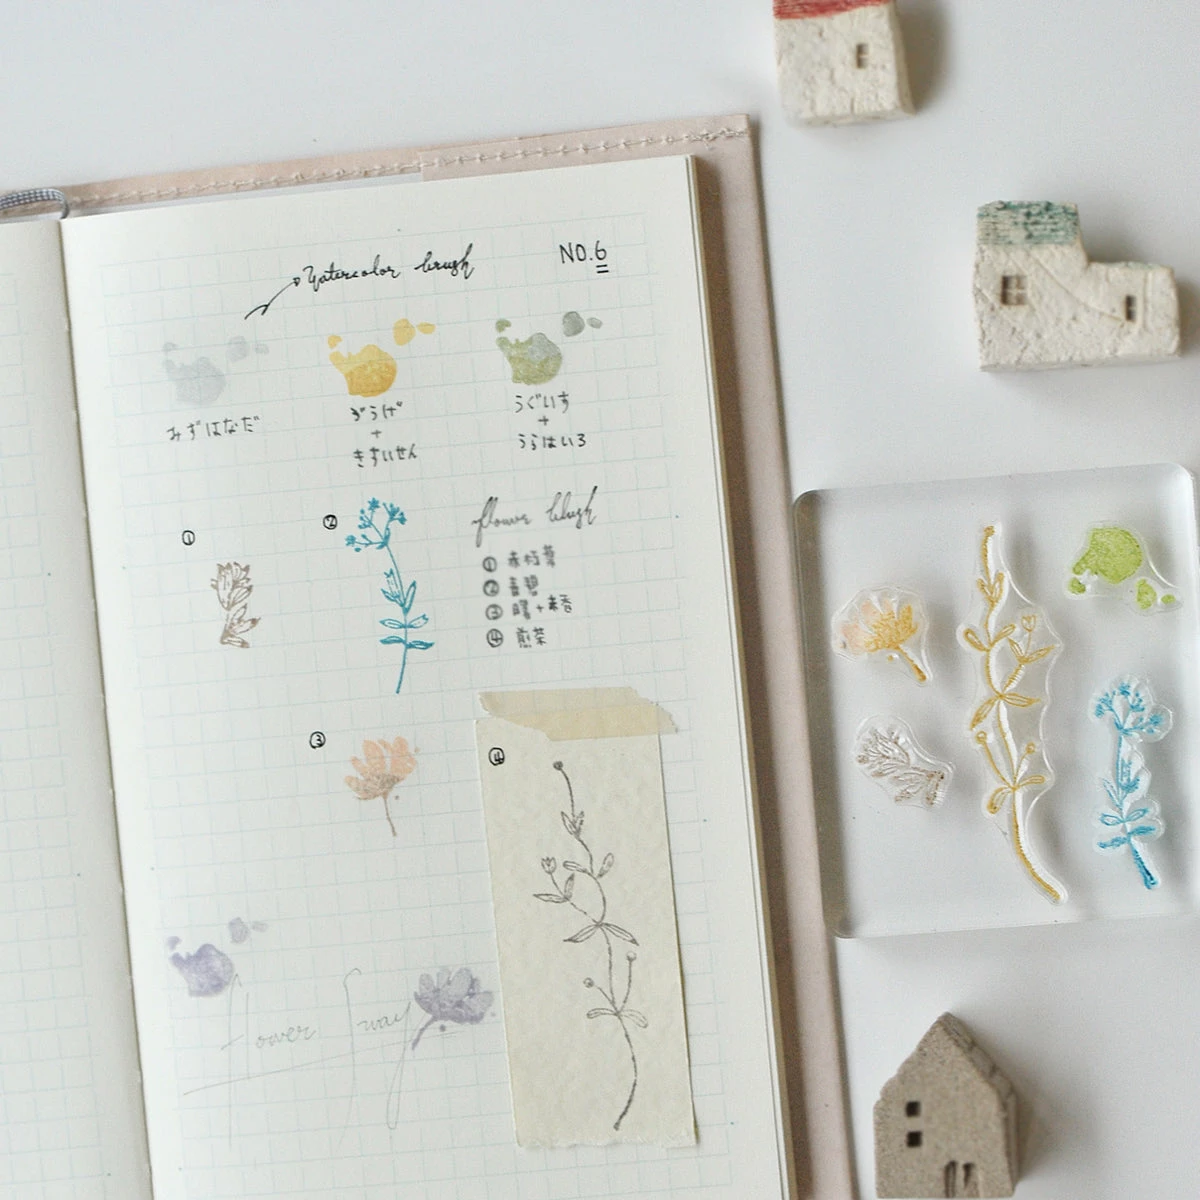 Watercolor brush
NO.6
みずはなだ
ぞうげ
+
きすいせん
うぐいす
+
うらはいろ
①
②
flower blush
① 赤朽葉
② 青碧
③ 曙+木香
④ 煎茶
③
④
flower sway